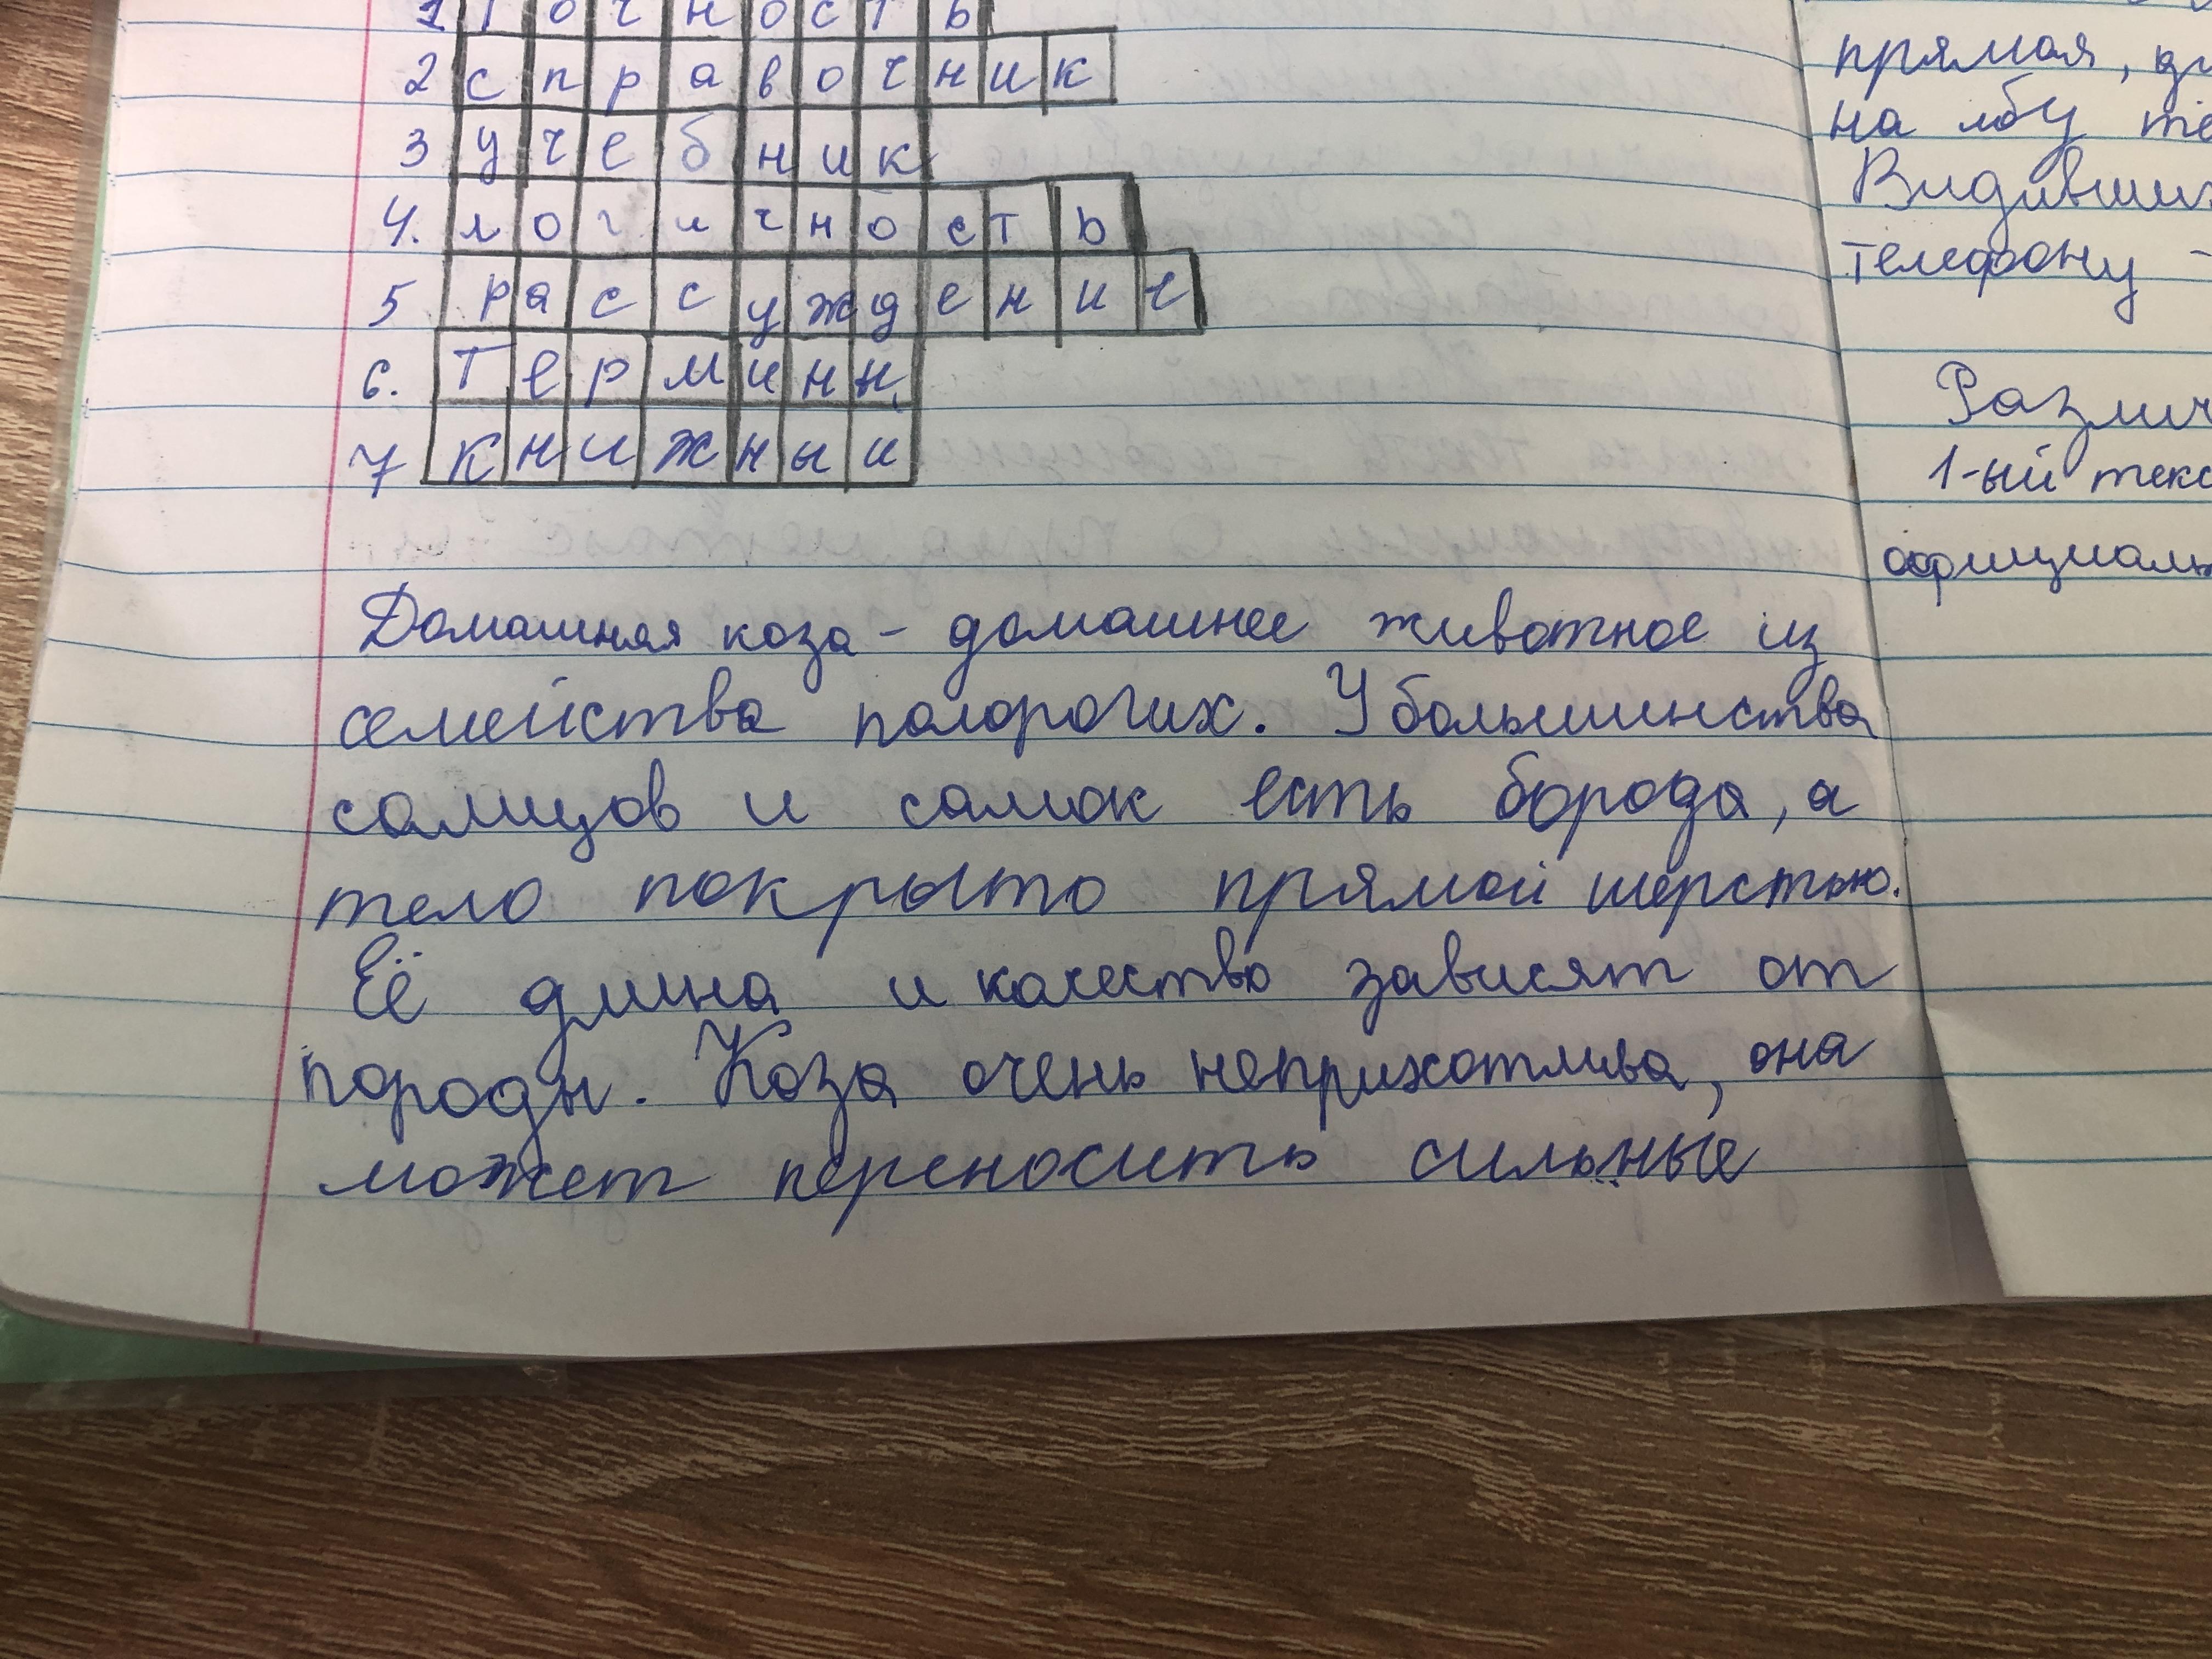 1 точность
2 справочник
3 учебник
4. логичность
5 рассуждение
6. Терминн
7 книжныи
Домашняя коза - домашнее животное из
семейства полорогих. У большинства
самцов и самок есть борода, а
тело покрыто прямой шерстью.
Её длина и качество зависят от
породы. Коза очень неприхотлива, она
может переносить сильные
прямая,
на лбу
Видивших
телефону -
Различ
1-ый текс
официаль